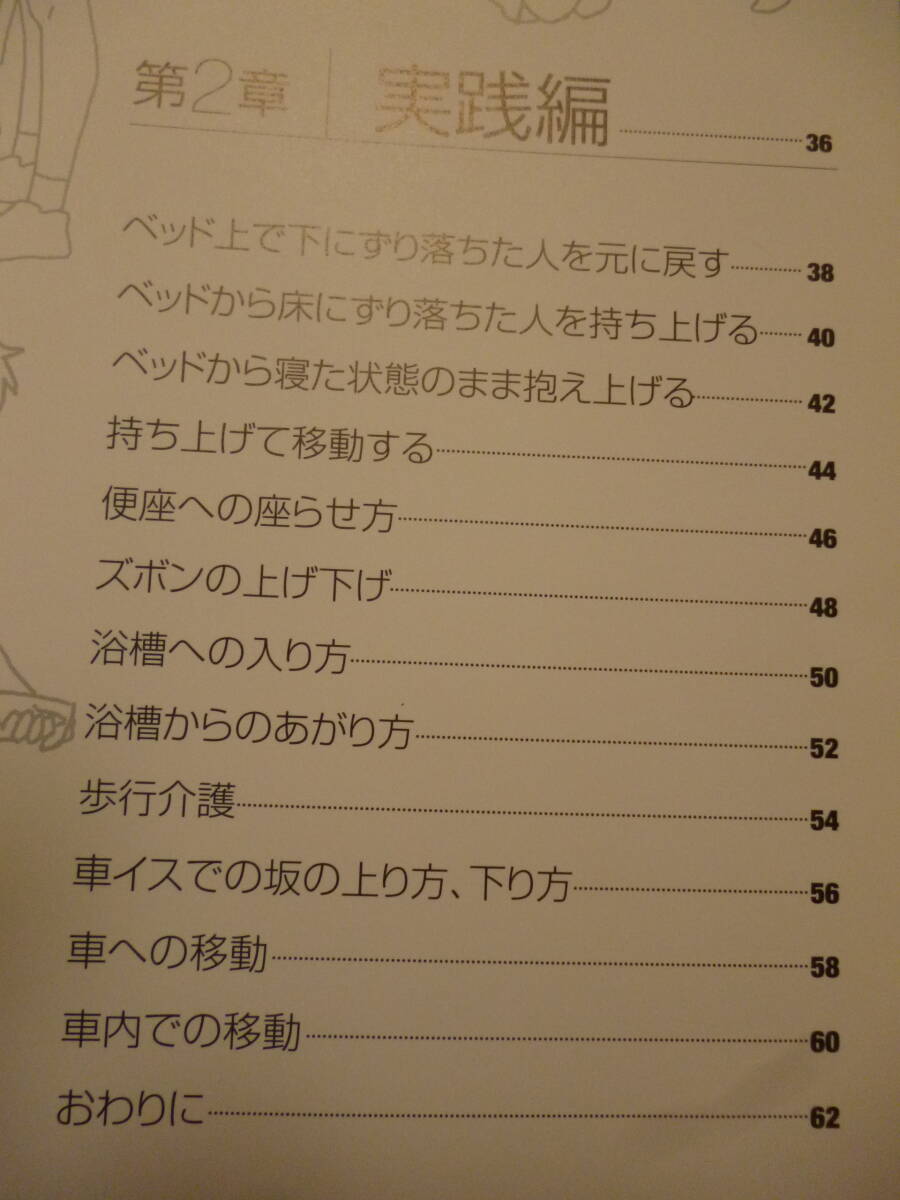 第2章 実践編 36
ベッド上で下にずり落ちた人を元に戻す 38
ベッドから床にずり落ちた人を持ち上げる 40
ベッドから寝た状態のまま抱え上げる 42
持ち上げて移動する 44
便座への座らせ方 46
ズボンの上げ下げ 48
浴槽への入り方 50
浴槽からのあがり方 52
歩行介護 54
車イスでの坂の上り方、下り方 56
車への移動 58
車内での移動 60
おわりに 62